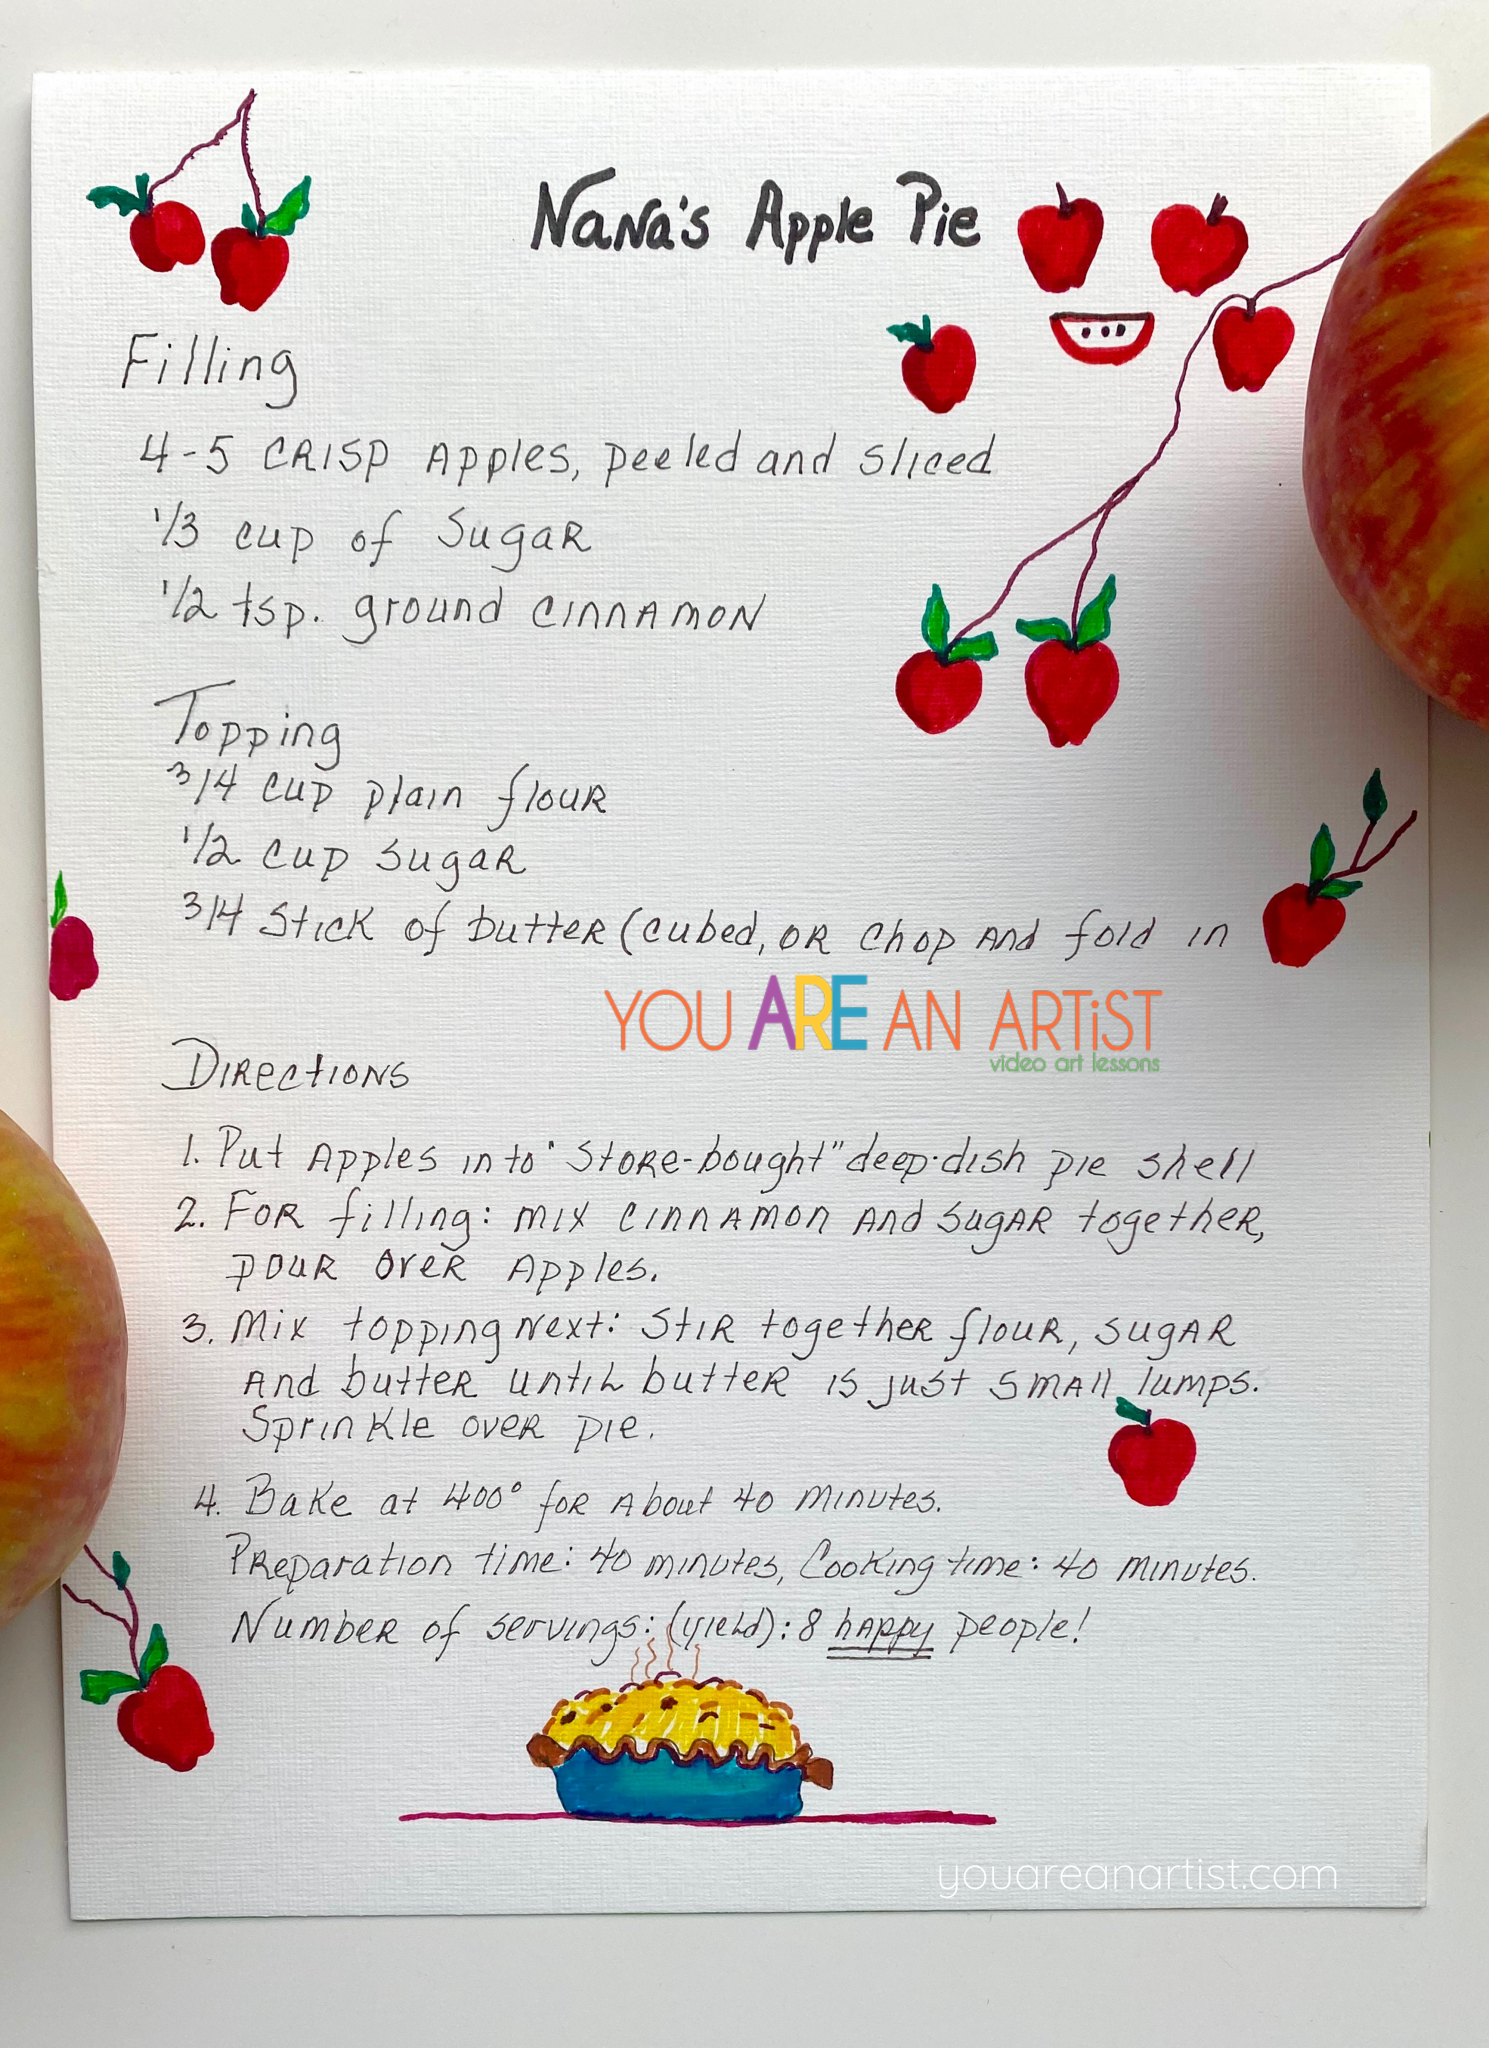 Nana's Apple Pie
Filling
4-5 crisp apples, peeled and sliced
1/3 cup of sugar
1/2 tsp. ground cinnamon
Topping
3/4 cup plain flour
1/2 cup sugar
3/4 stick of butter (cubed, or chop and fold in
YOU ARE AN ARTiST
video art lessons
Directions
1. Put apples into "store-bought" deep-dish pie shell
2. For filling: mix cinnamon and sugar together,
pour over apples.
3. Mix topping next: Stir together flour, sugar
and butter until butter is just small lumps.
Sprinkle over pie.
4. Bake at 400° for about 40 minutes.
Preparation time: 40 minutes, Cooking time: 40 minutes.
Number of servings: (yield): 8 happy people!
youareanartist.com